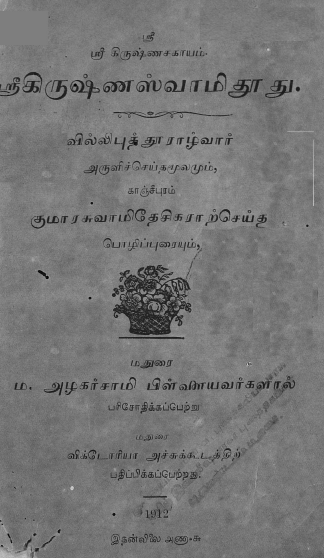 ஸ்ரீ
ஸ்ரீ கிருஷ்ணசகாயம்.
ஸ்ரீகிருஷ்ணஸ்வாமிதூது.
வில்லிபுத்தூராழ்வார்
அருளிச்செய்தமூலமும்,
காஞ்சீபுரம்
குமாரசுவாமிதேசிகராற்செய்த
பொழிப்புரையும்,
மதுரை
ம. அழகர்சாமி பிள்ளையவர்களால்
பரிசோதிக்கப்பெற்று
மதுரை
விக்டோரியா அச்சுக்கூடத்திற்
பதிப்பிக்கப்பெற்றது.
1912
இதன்விலை அணா-சு